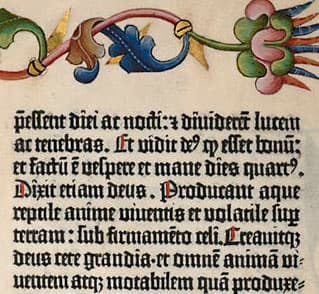 p̄essent diei ac nocti: ⁊ dividerēt lucem
ac tenebras. Et vidit deꝰ qꝫ esset bonū:
et factū ē vespere et mane dies quartꝰ.
Dixit etiam deus. Producant aque
reptile anime viventis et volatile suꝑ
terram: sub firmamēto celi. Creavitqꝫ
deus cete grandia· et omnē animā vi-
ventem atqꝫ motabilem quā produxe-